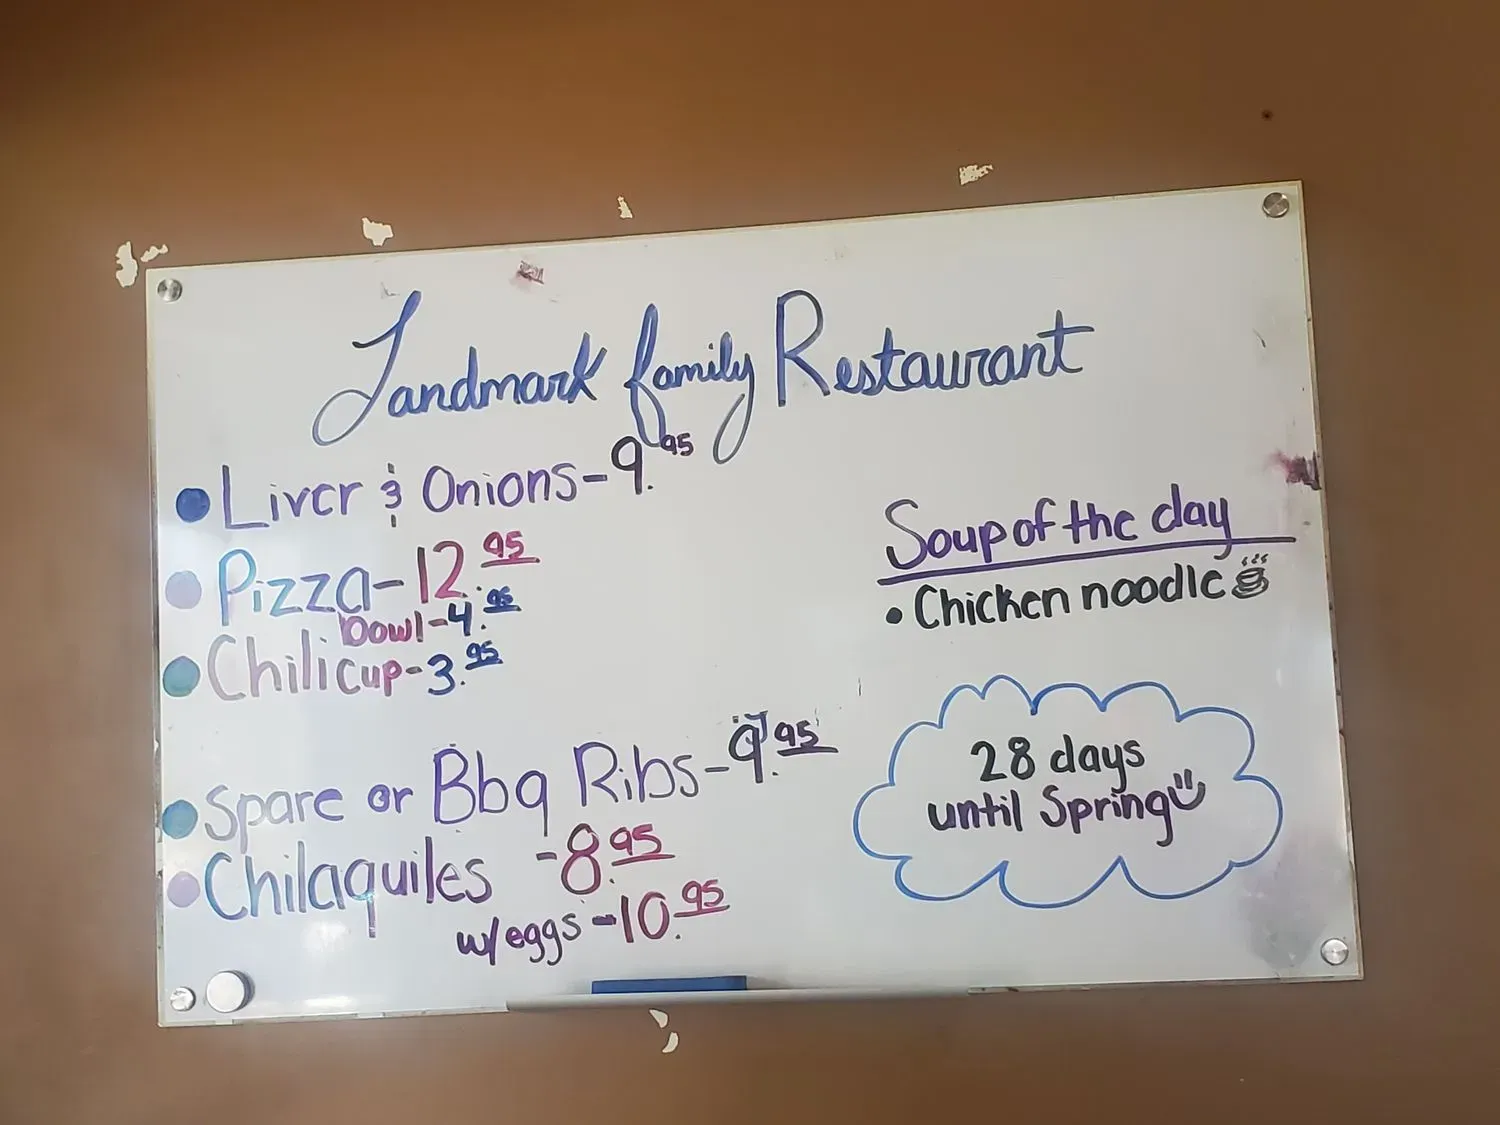 Landmark family Restaurant
Liver & Onions-9.95
Pizza-12.95
bowl-4.95
Chili cup-3.95
Spare or Bbq Ribs-9.95
Chilaquiles -8.95
w/eggs -10.95
Soup of the day
• Chicken noodle
28 days
until Spring